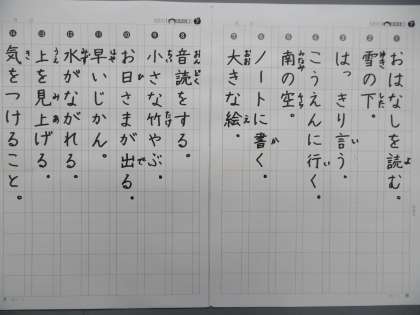 ① おはなしを読む。
② 雪の下。
③ はっきり言う。
④ こうえんに行く。
⑤ 南の空。
⑥ ノートに書く。
⑦ 大きな絵。
⑧ 音読をする。
⑨ 小さな竹やぶ。
⑩ お日さまが出る。
⑪ 早いじかん。
⑫ 水がながれる。
⑬ 上を見上げる。
⑭ 気をつけること。